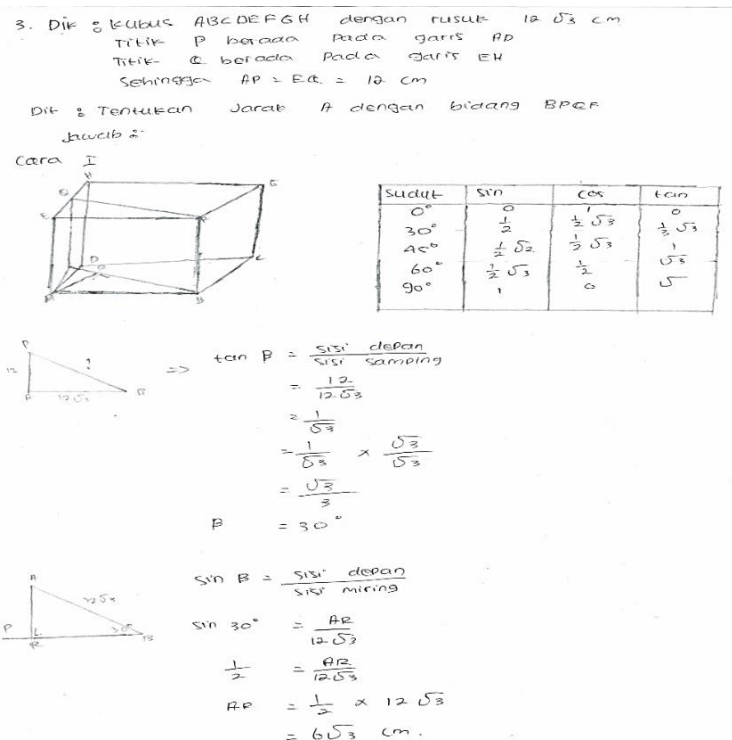 3. Dik : kubus ABCDEFGH dengan rusuk 12 √3 cm
Titik P berada Pada garis AD
Titik Q berada Pada garis EH
Sehingga AP = EQ = 12 cm
Dit : Tentukan Jarak A dengan bidang BPQF
Jawab :
Cara I
H
G
Q
E
F
D
C
A
B
sudut sin cos tan
0° 0 1 0
30° 1/2 1/2 √3 1/3 √3
45° 1/2 √2 1/2 √3 1
60° 1/2 √3 1/2 √3
90° 1 0 √
P
12
?
A
12√3
B
=> tan B = sisi depan / sisi samping
= 12 / 12√3
= 1 / √3
= 1 / √3 × √3 / √3
= √3 / 3
B = 30°
A
12√3
P
R
30
B
sin B = sisi depan / sisi miring
sin 30° = AR / 12√3
1/2 = AR / 12√3
AR = 1/2 × 12 √3
= 6√3 cm.